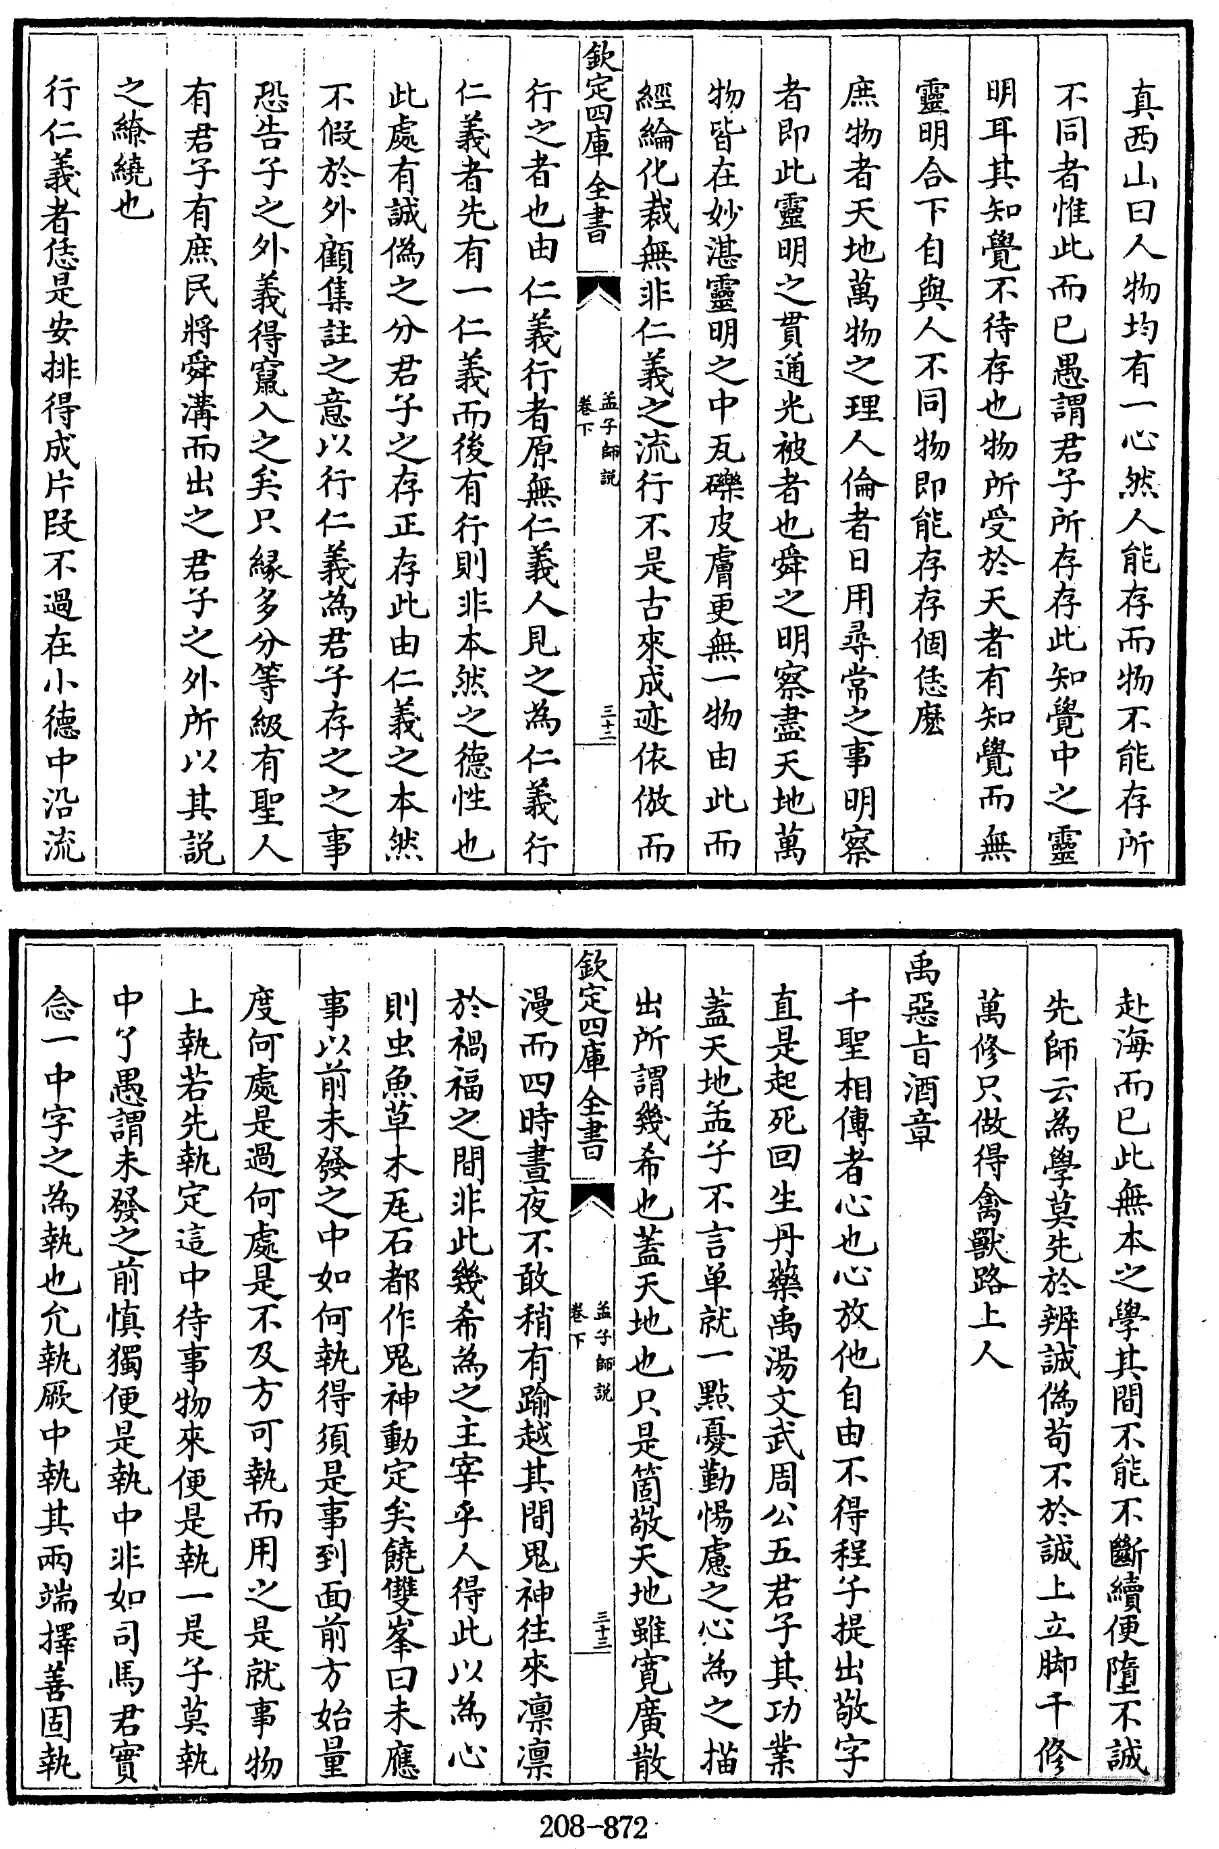 真西山曰人物均有一心然人能存而物不能存所
不同者惟此而已愚謂君子所存存此知覺中之靈
明耳其知覺不待存也物所受於天者有知覺而無
靈明合下自與人不同物即能存存個恁麼
庶物者天地萬物之理人倫者日用尋常之事明察
者即此靈明之貫通光被者也舜之明察盡天地萬
物皆在妙湛靈明之中瓦礫皮膚更無一物由此而
經綸化裁無非仁義之流行不是古來成迹依倣而
欽定四庫全書
孟子師説
卷下
三十二
行之者也由仁義行者原無仁義人見之為仁義行
仁義者先有一仁義而後有行則非本然之德性也
此處有誠偽之分君子之存正存此由仁義之本然
不假於外顧集註之意以行仁義為君子存之之事
恐告子之外義得竄入之矣只縁多分等級有聖人
有君子有庶民將舜溝而出之君子之外所以其説
之繚繞也
行仁義者恁是安排得成片段不過在小德中沿流
赴海而已此無本之學其間不能不斷續便墮不誠
先師云為學莫先於辨誠偽苟不於誠上立脚千修
萬修只做得禽獸路上人
禹惡旨酒章
千聖相傳者心也心放他自由不得程子提出敬字
直是起死回生丹藥禹湯文武周公五君子其功業
蓋天地孟子不言单就一點憂勤惕慮之心為之描
出所謂幾希也蓋天地也只是箇敬天地雖寛廣散
欽定四庫全書
孟子師説
卷下
三十三
漫而四時晝夜不敢稍有踰越其間鬼神往來凛凛
於禍福之間非此幾希為之主宰乎人得此以為心
則虫魚草木瓦石都作鬼神動定矣饒雙峯曰未應
事以前未發之中如何執得須是事到面前方始量
度何處是過何處是不及方可執而用之是就事物
上執若先執定這中待事物來便是執一是子莫執
中了愚謂未發之前慎獨便是執中非如司馬君實
念一中字之為執也允執厥中執其兩端擇善固執
208-872